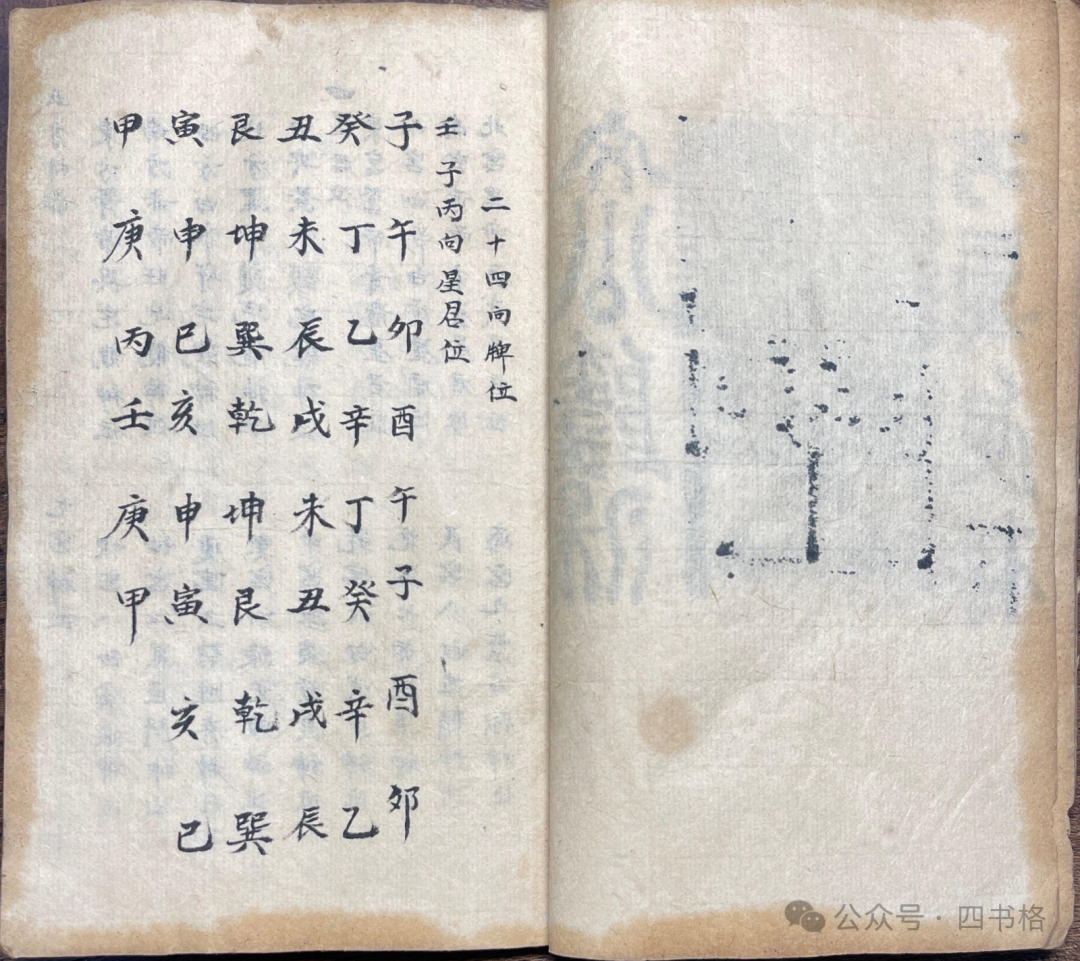 二十四向牌位
壬子丙向星君位
子午卯酉 午子酉卯
癸丁乙辛 丁癸辛乙
丑未辰戌 未丑戌辰
艮坤巽乾 坤艮乾巽
寅申巳亥 申寅亥巳
甲庚丙壬 庚甲
公众号 · 四书格